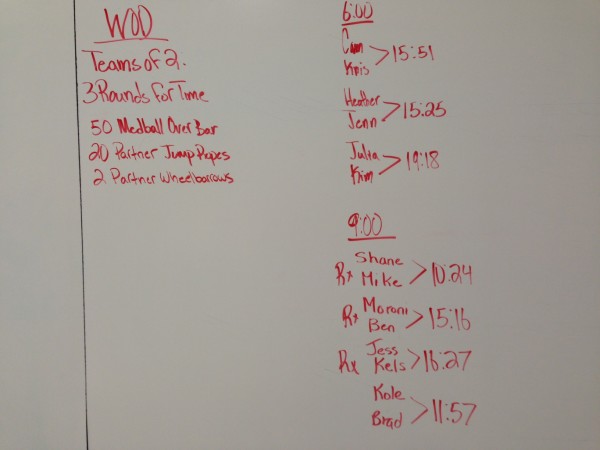 WOD
Teams of 2.
3 Rounds for Time
50 Medball Over Bar
20 Partner Jump Ropes
2 Partner Wheelbarrows
6:00
Cam
Kris > 15:51
Heather
Jenn > 15:25
Julia
Kim > 19:18
9:00
Shane
Rx Mike > 10:24
Rx Moroni
Ben > 15:16
Rx Jess
Kels > 16:27
Kole
Brad > 11:57